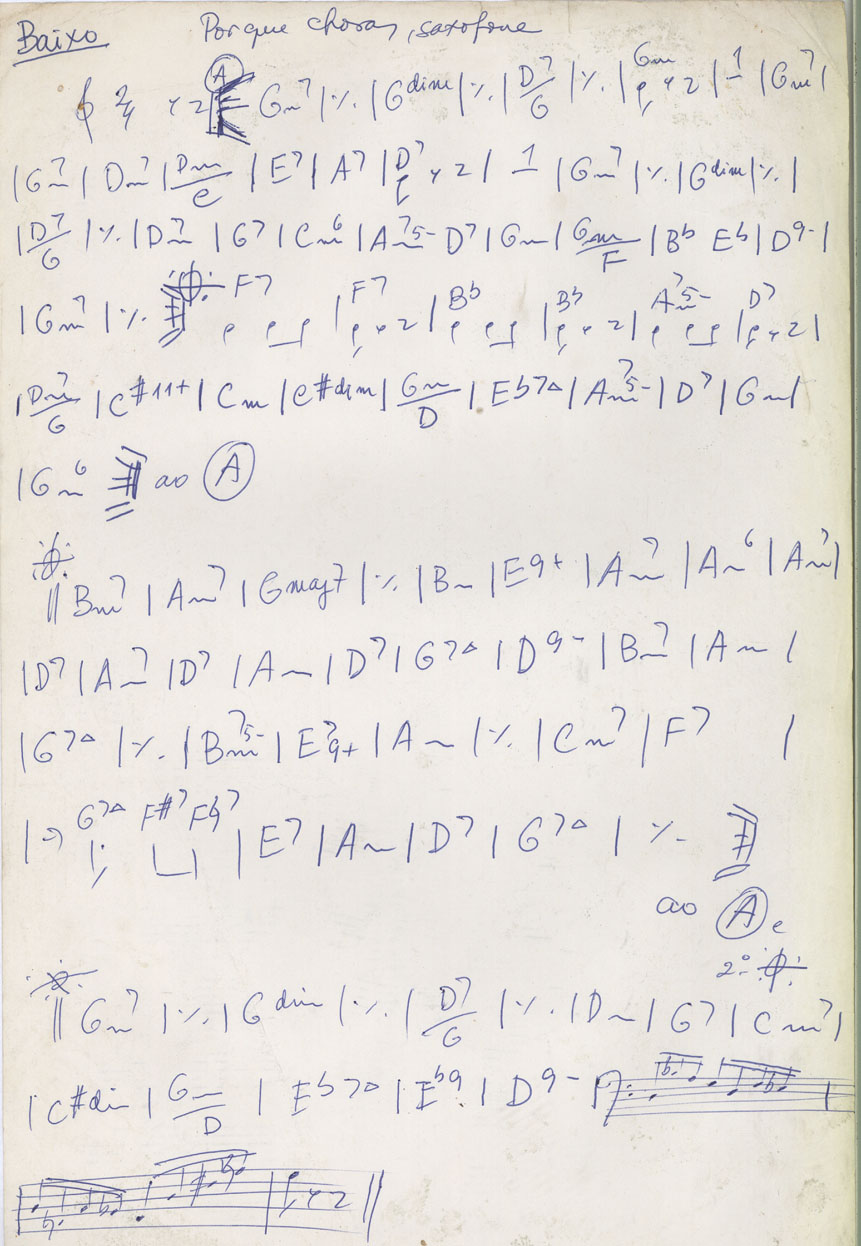 Baixo Porque choras, saxofone
A
2/4 Gm7 | ٪ | Gdim | ٪ | D7/G | ٪ | Gm | 1 | Gm7 |
| Gm7 | Dm7 | Dm/C | E7 | A7 | D7 | 1 | Gm7 | ٪ | Gdim | ٪ |
| D7/G | ٪ | Dm7 | G7 | Cm6 | Am75- D7 | Gm | Gm/F | Bb Eb | D9- |
| Gm7 | ٪ F7 | F7 | Bb | Bb | Am75- | D7 |
| Dm7/G | C#11+ | Cm | C#dim | Gm/D | Eb7△ | Am75- | D7 | Gm |
| Gm6 ao A
|| Bm7 | Am7 | Gmaj7 | ٪ | Bm | E9+ | Am7 | Am6 | Am7 |
| D7 | Am7 | D7 | Am | D7 | G7△ | D9- | Bm7 | Am |
| G7△ | ٪ | Bm75- | E79+ | Am | ٪ | Cm7 | F7 |
| G7△ F#7 F♮7 | E7 | Am | D7 | G7△ | ٪
ao A e
2º
|| Gm7 | ٪ | Gdim | ٪ | D7/G | ٪ | Dm | G7 | Cm7 |
| C#dim | Gm/D | Eb7△ | Eb9 | D9- |